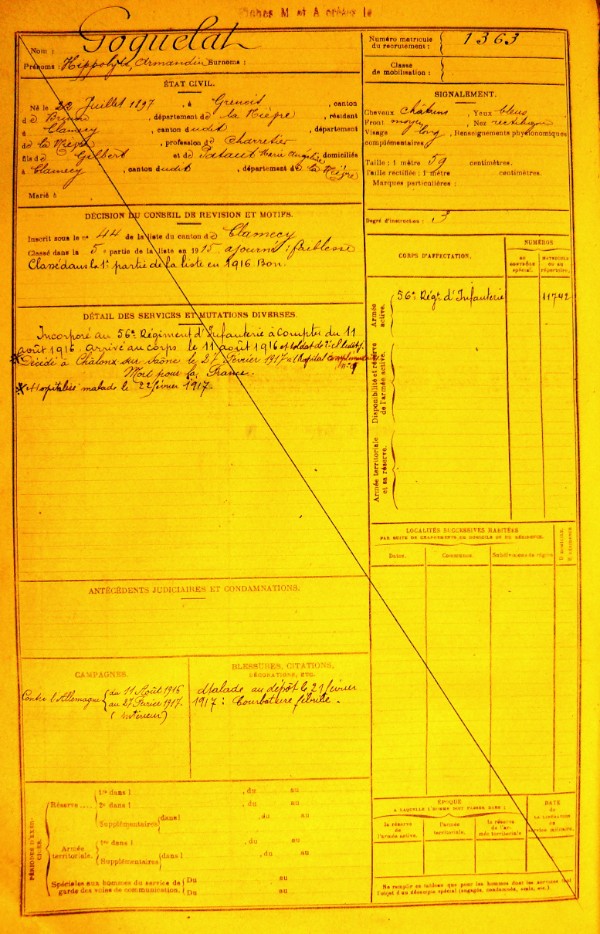 Goguelat
Nom :
Prénoms : Hippolyte, Armandin Surnoms :
Numéro matricule
du recrutement :
1363
Classe
de mobilisation :
ÉTAT CIVIL.
Né le 22 Juillet 1897, à Grenois, canton
d e Brinon, département de la Nièvre, résidant
à Clamecy, canton dudit, département
de la Nièvre, profession de Charretier
fils de Gilbert et de Marie domiciliés
à Clamecy, canton dudit, département de la Nièvre
Marié à
SIGNALEMENT.
Cheveux Châtains, Yeux bleus
Front moyen, Nez rectiligne
Visage long, Renseignements physionomiques
complémentaires :
Taille : 1 mètre 59 centimètres.
Taille rectifiée : 1 mètre centimètres.
Marques particulières :
Degré d'instruction : 3
DÉCISION DU CONSEIL DE REVISION ET MOTIFS.
Inscrit sous le n° 44 de la liste du canton de Clamecy
Classé dans la 5e partie de la liste en 1915 ajourné : faiblesse
Classé dans la 1e partie de la liste en 1916. Bon.
CORPS D'AFFECTATION.
NUMÉROS
AU
CONTRÔLE
spécial.
MATRICULE
OU AU
RÉPERTOIRE.
Armée
active.
56e Régt d'Infanterie
11742
Disponibilité et réserve
de l'armée active.
Armée territoriale
et sa réserve.
DÉTAIL DES SERVICES ET MUTATIONS DIVERSES.
Incorporé au 56e Régiment d'Infanterie à compter du 11
août 1916. arrivé au corps le 11 août 1916 et soldat de 2e cl
Décédé à Chalons sur Saône le 27 février 1917 à l'hôpital complémentaire
Mort pour la France.
Hospitalisé malade le 22 février 1917.
LOCALITÉS SUCCESSIVES HABITÉES
PAR SUITE DE CHANGEMENTS DE DOMICILE OU DE RÉSIDENCE.
Dates. Communes. Subdivisions de région.
ANTÉCÉDENTS JUDICIAIRES ET CONDAMNATIONS.
CAMPAGNES.
Contre l'Allemagne du 11 Août 1916
au 27 Février 1917.
(intérieur)
BLESSURES, CITATIONS,
DÉCORATIONS, ETC.
Malade au dépôt le 21 février
1917 : Courbature fébrile.
PÉRIODES D'EXERCICES.
Réserve
1re dans l , du au
2e dans l , du au
Supplémentaires dans l , du au
Armée
territoriale.
1re dans l , du au
Supplémentaires dans l , du au
Spéciales aux hommes du service de
garde des voies de communication.
Du au
Du au
ÉPOQUE
À LAQUELLE L'HOMME DOIT PASSER DANS :
la réserve
de
l'armée active.
l'armée
territoriale.
la réserve
de l'armée territoriale.
DATE
DE
LA LIBÉRATION
du
service militaire.
Ne remplir ce tableau que pour les hommes dont les services font
l'objet d'un décompte spécial (engagés, condamnés, omis, etc.).